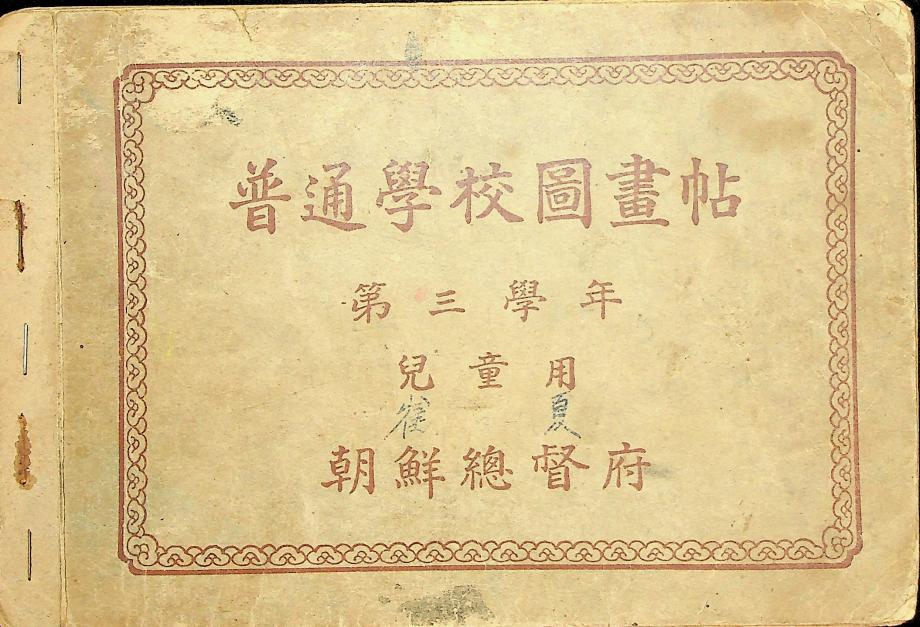 普通學校圖畫帖
第三學年
兒童用
崔 夏
朝鮮總督府